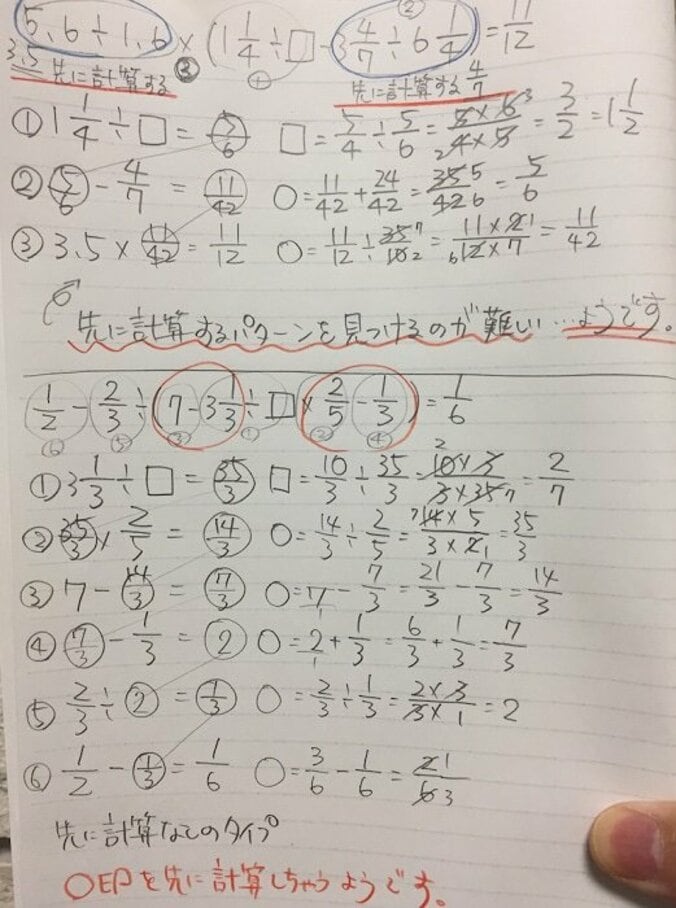 5.6÷1.6×(1 1/4÷□-3 4/7÷6 1/4)=11/12
② 
3.5 先に計算する ③ ④ 先に計算する 4/7
① 1 1/4÷□=5/6 □=5/4÷5/6=5×6 3/2 4×5=3/2=1 1/2
② 5/6-4/7=11/42 ○=11/42+24/42=35 5/42 6=5/6
③ 3.5×11/42=11/12 ○=11/12÷35 7/10 2=11×2 1/6 12×7=11/42
先に計算するパターンを見つけるのが難しい…ようです。
1/2-2/3÷(7-3 1/3÷□×2/5-1/3)=1/6
⑥ ⑤ ③ ① ② ④
① 3 1/3÷□=35/3 □=10/3÷35/3=2 10×3/3×35 7=2/7
② 35/3×2/5=14/3 ○=14/3÷2/5=7 14×5/3×2 1=35/3
③ 7-14/3=7/3 ○=7/1-7/3=21/3-7/3=14/3
④ 7/3-1/3=2 ○=2/1+1/3=6/3+1/3=7/3
⑤ 2/3÷2=1/3 ○=2/3÷1/3=2×3/3×1=2
⑥ 1/2-1/3=1/6 ○=3/6-1/6=2 1/6 3
先に計算なしのタイプ
○印を先に計算しちゃうようです。